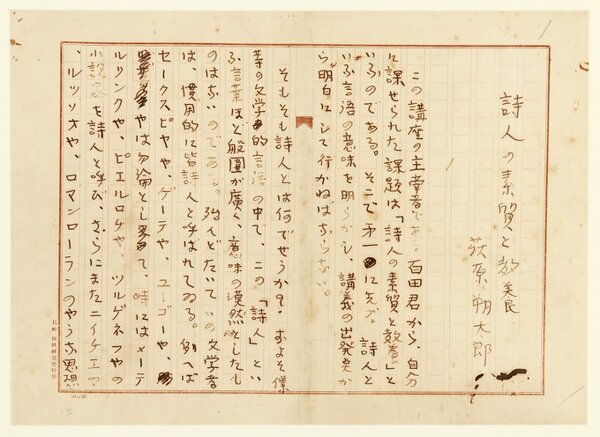 詩人の素質と教養
萩原朔太郎
この講座の主宰者である。百田君から、自分
に課せられた課題は「詩人の素質と教養」と
いふのである。そこで第一に先づ。詩人と
いふ言語の意味を明らかし、講義の出発点か
ら明白にして行かねばならない。
そもそも詩人とは何でせうか？およそ僕
等の文学的言語の中で、この「詩人」とい
ふ言葉ほど範囲が廣く、意味の漠然としたも
のはないのである。殆んどたいていの文学者
は、慣用的に皆詩人と呼ばれてゐる。例へば
セークスピヤや、ゲーテや、ユーゴーや、
やは勿論として、時にはメーテ
ルリンクや、ピエルロチや、ツルゲネフやの
小説家を詩人と呼び、さらにまたニイチエや
、ルツソオや、ロマンローランのやうな思想